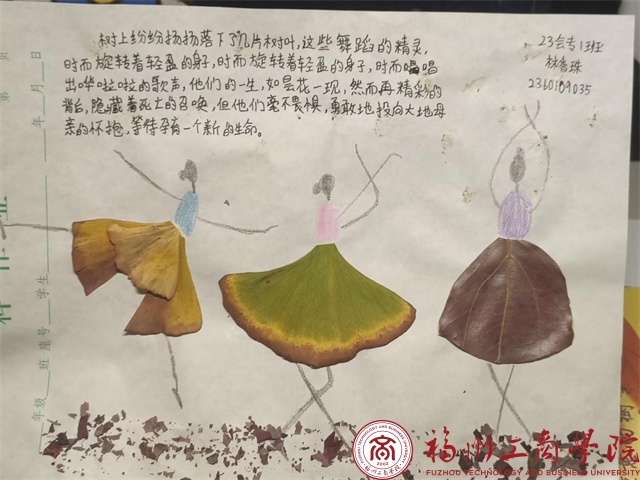 树上纷纷扬扬落下了几片树叶,这些舞蹈的精灵,
时而旋转着轻盈的身子,时而旋转着轻盈的身子,时而唱唱
出哗啦啦的歌声,他们的一生,如昙花一现,然而再精彩的
舞台,隐藏着死亡的召唤,但他们毫不畏惧,勇敢地投向大地母
亲的怀抱,等待孕育一个新的生命。
23会专1班
林香珠
2360109035
年级 班 座号 学生 年 月 日 第 页
福州工商学院
FUZHOU TECHNOLOGY AND BUSINESS UNIVERSITY